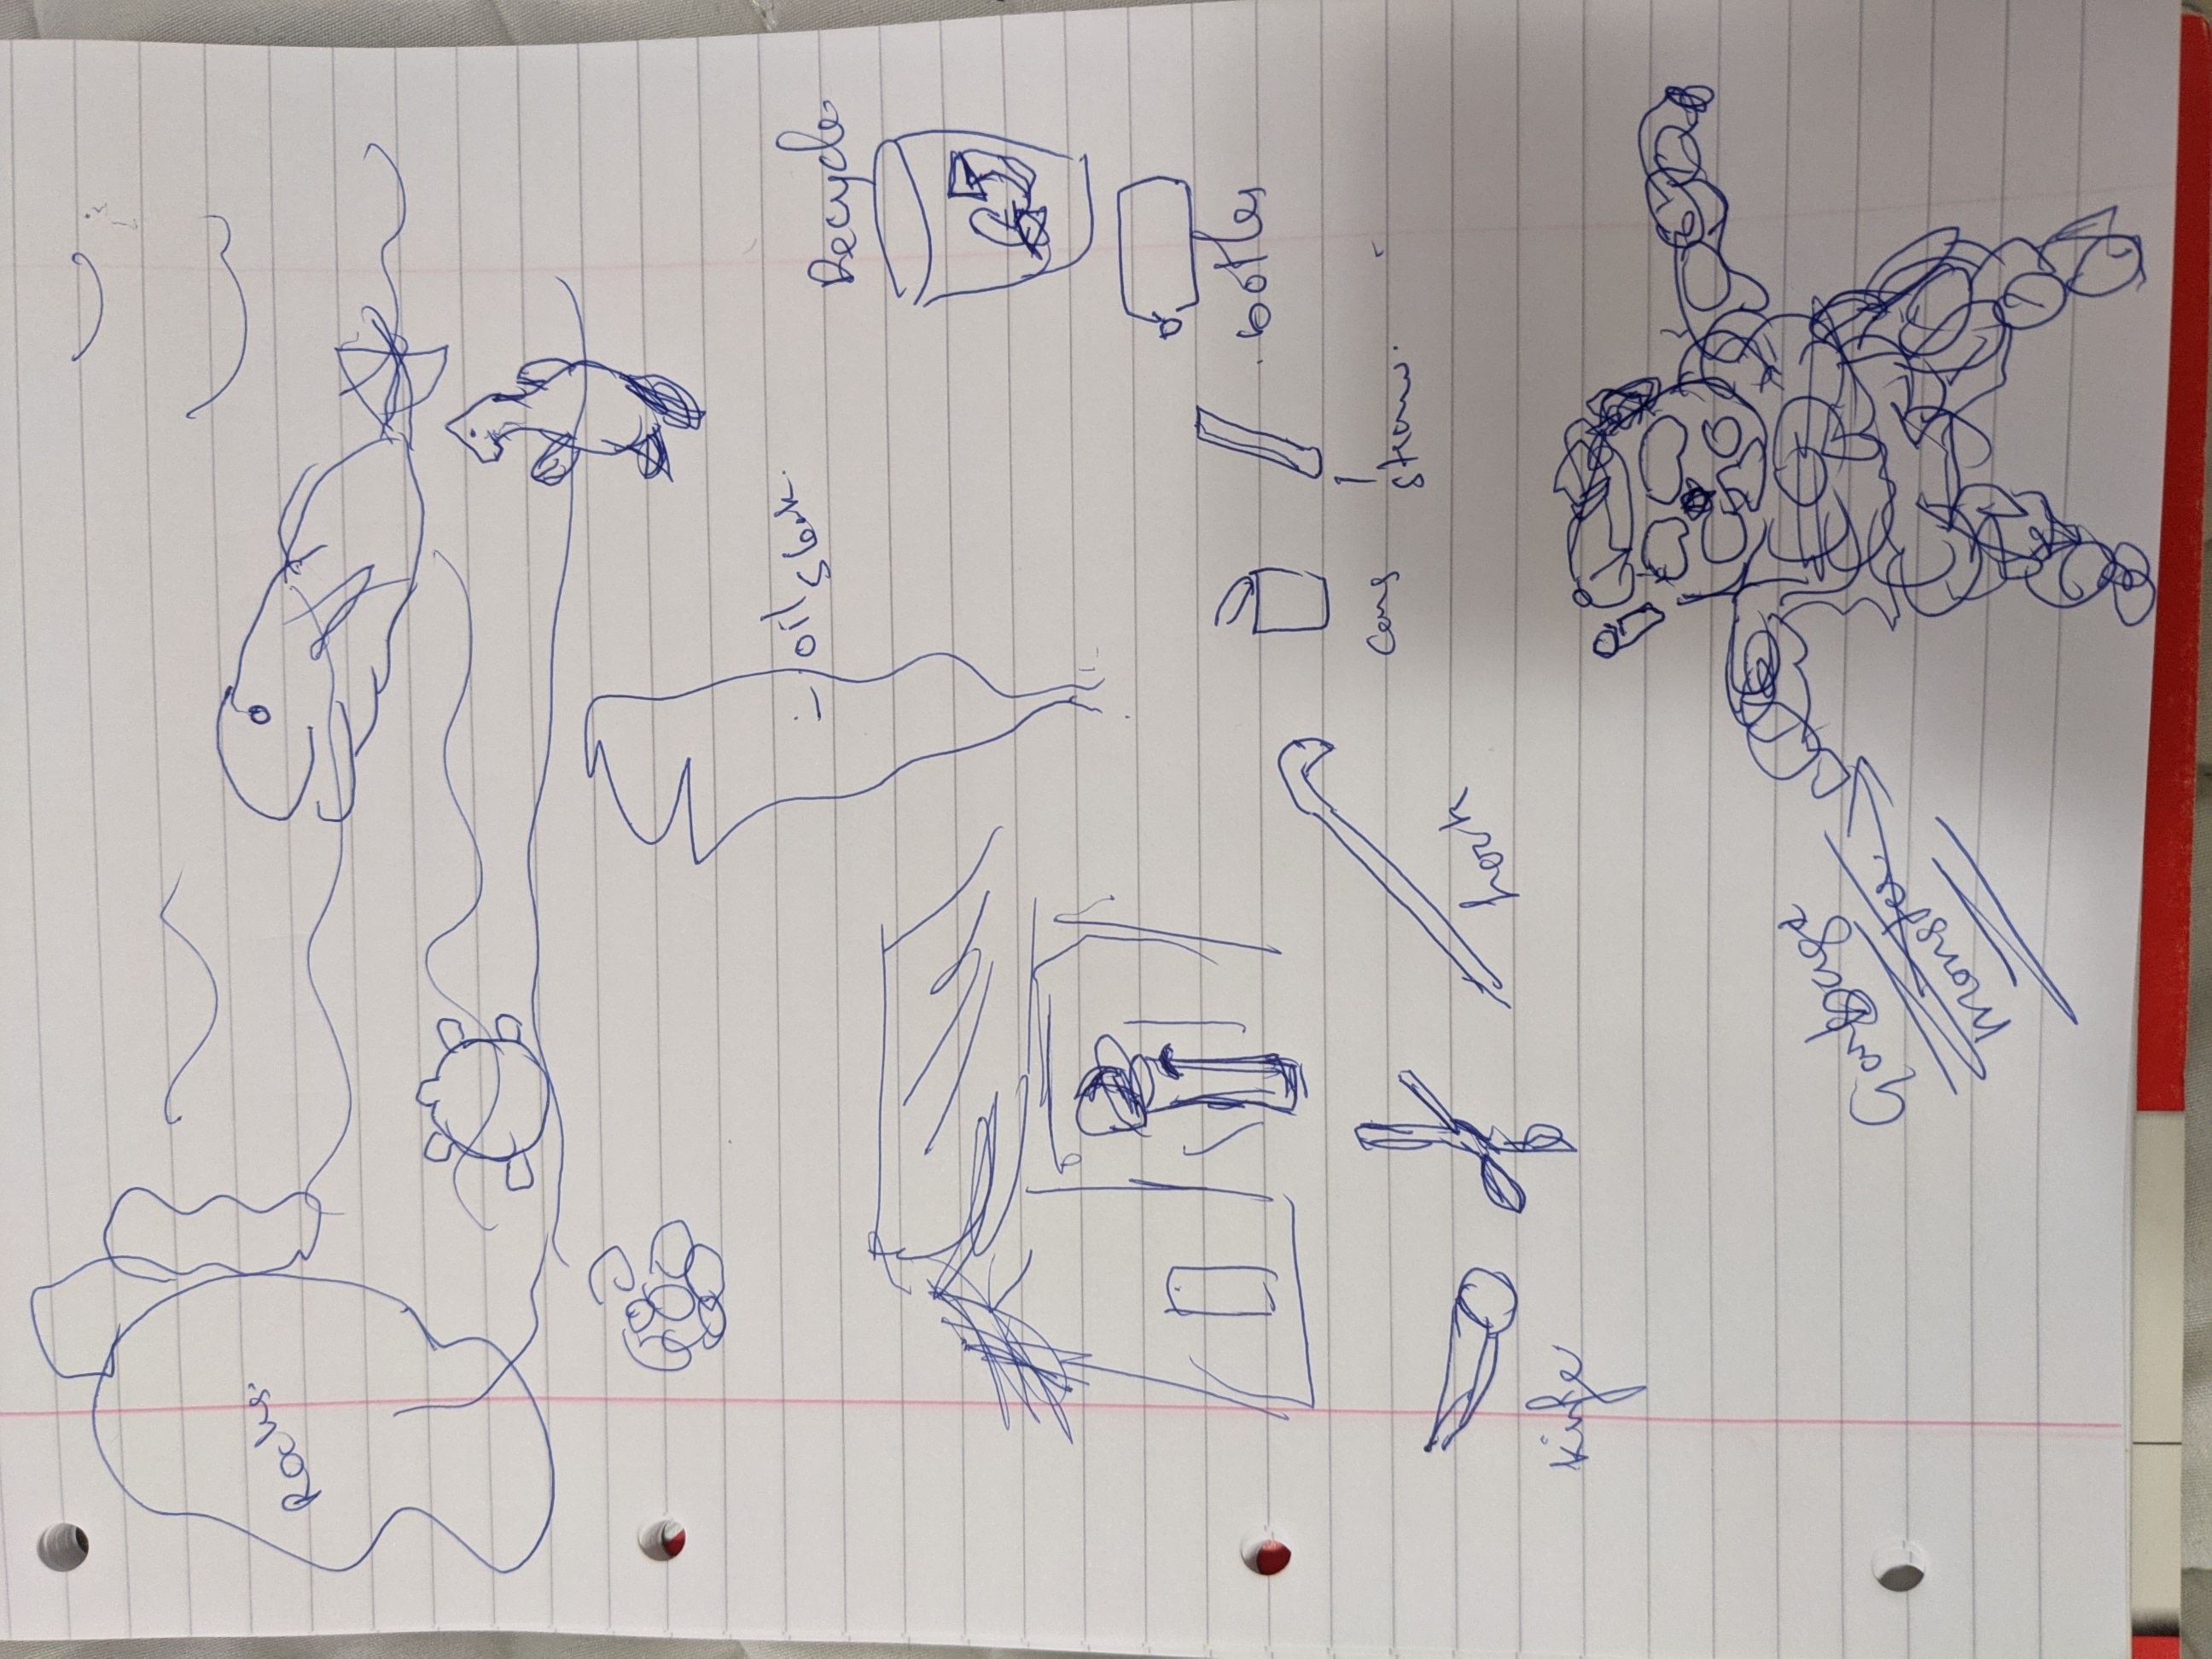 Rocks.
oil
sleek.
Recycle
bottles
cans
straw.
hook
Kife
Garbage
Monster